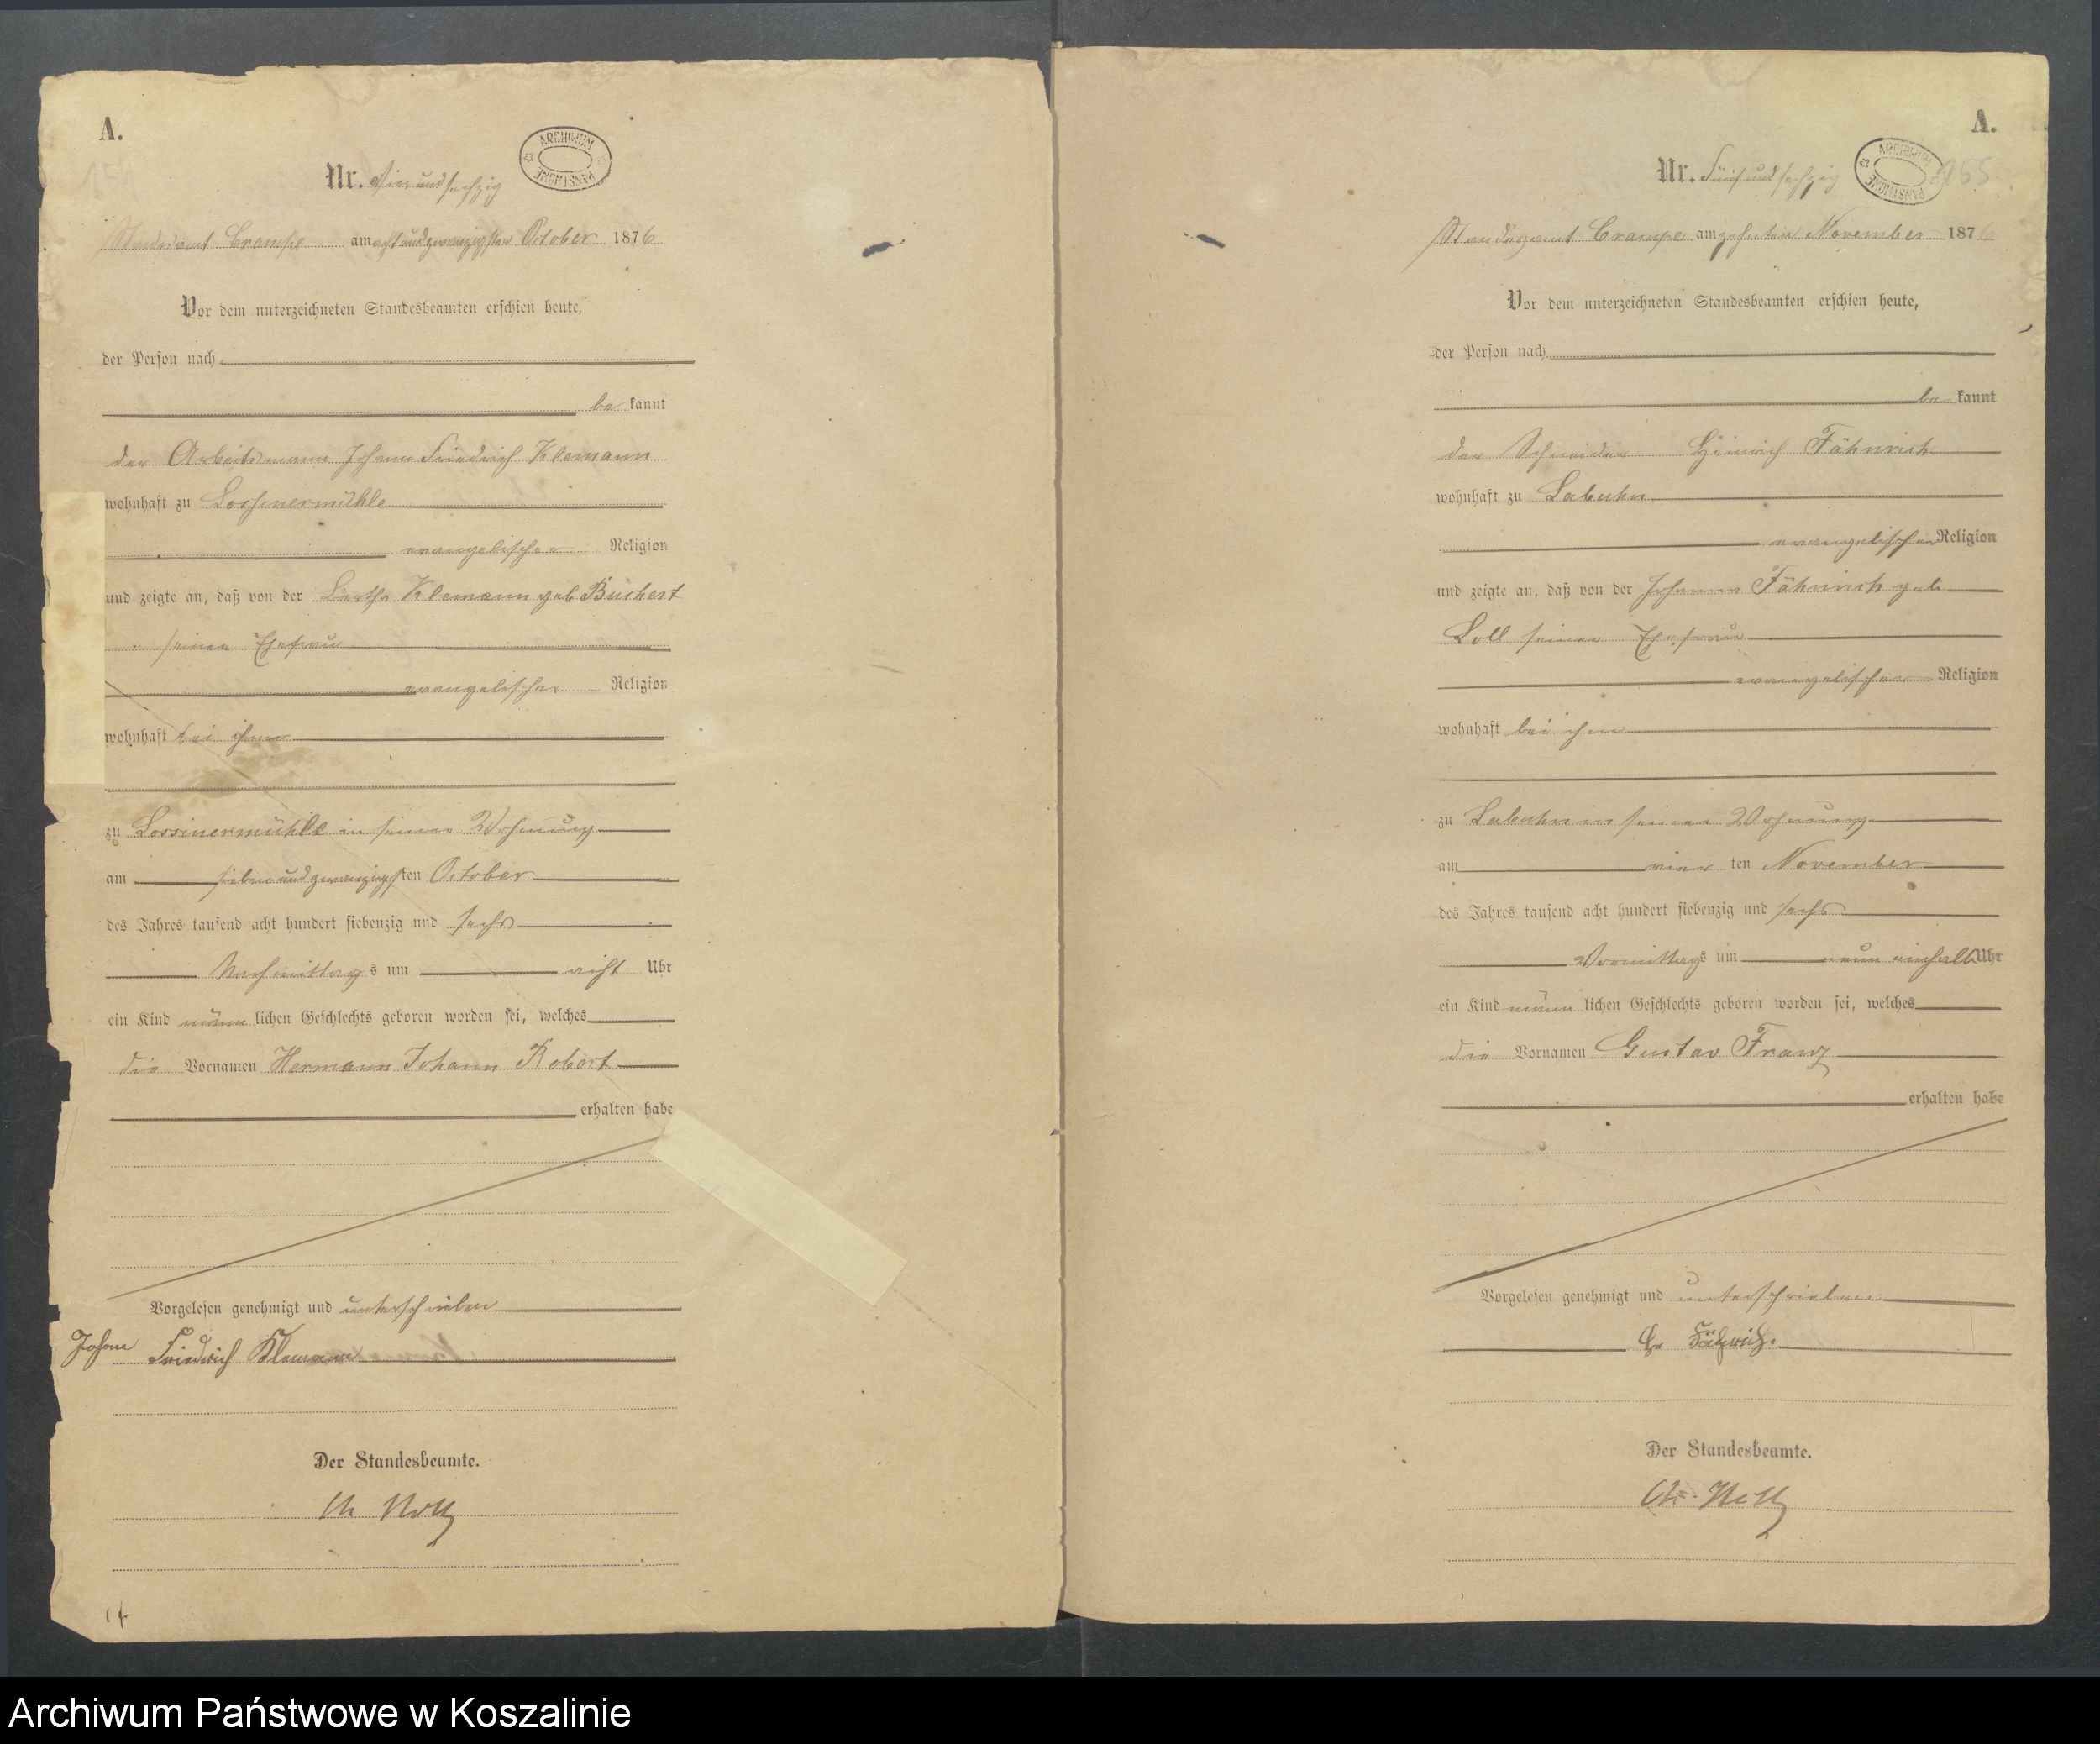 A.
ARCHIWUM PAŃSTWOWE
Nr. Vier und sechzig
Standesamt Crampe am acht und zwanzigsten October 1876
Vor dem unterzeichneten Standesbeamten erschien heute,
der Person nach
be kannt
der Arbeitsmann Johann Friedrich Klemann
wohnhaft zu Lossinermühle
evangelischer Religion
und zeigte an, daß von der Bertha Klemann geb Buchert
seiner Ehefrau
evangelischer Religion
wohnhaft bei ihm
zu Lossinermühle in seiner Wohnung
am sieben und zwanzigsten October
des Jahres tausend acht hundert siebenzig und sechs
Nachmittags um acht Uhr
ein Kind männlichen Geschlechts geboren worden sei, welches
die Vornamen Hermann Johann Robert
erhalten habe
Vorgelesen genehmigt und unterschrieben
Johann Friedrich Klemann
Der Standesbeamte.
A.
ARCHIWUM PAŃSTWOWE
155
Nr. Fünf und sechzig
Standesamt Crampe am zehnten November 1876
Vor dem unterzeichneten Standesbeamten erschien heute,
der Person nach
be kannt
der Schneider Heinrich Fähnrich
wohnhaft zu Labuhn
evangelischer Religion
und zeigte an, daß von der Johanna Fähnrich geb
Loll seiner Ehefrau
evangelischer Religion
wohnhaft bei ihm
zu Labuhn in seiner Wohnung
am vier ten November
des Jahres tausend acht hundert siebenzig und sechs
Vormittags um neun einhalb Uhr
ein Kind männlichen Geschlechts geboren worden sei, welches
die Vornamen Gustav Franz
erhalten habe
Vorgelesen genehmigt und unterschrieben
Fähnrich.
Der Standesbeamte.
Archiwum Państwowe w Koszalinie